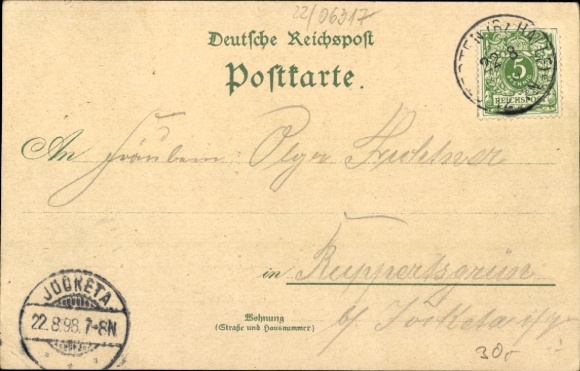 22/06317
Deutsche Reichspost
Postkarte.
5
REICHSPOST
22.8
An Fräulein Olga
in Ruppertsgrün
Wohnung
(Straße und Hausnummer)
b/
JOCKETA
22.8.98.7-8N
30,-